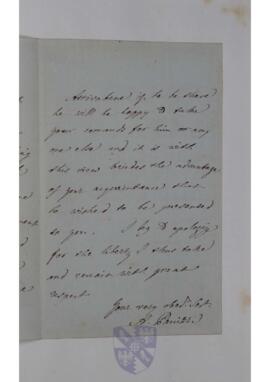 if to be there
he will be happy to take
your comands for him or any
one else and it is with
this view besides the advantage
of your acquaintance that
he wished to be presented
to you. I beg to apologize
for the liberty I thus take
and remain with great
respect
Your very obed. Servt.